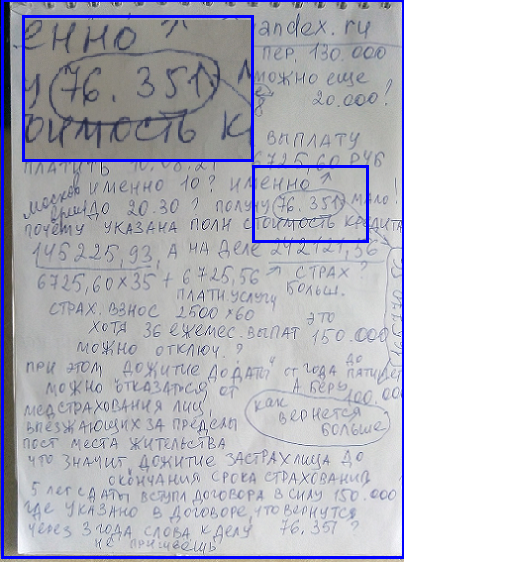 енно ?
у 76.351
оимость к
andex.ru
пер. 130.000
можно еще
20.000!
выплату
платить 10.08.21 6725,60 руб
Москов именно 10? именно ↑
время до 20.30? получу 76.351 мало!
почему указана полн стоимость кредита
145225,93, а на деле 242121,56
6725,60×35 + 6725,56 страх?
плати.услугу больш.
страх. взнос 2500×60 это
хотя 36 ежемес. выплат 150.000
можно отключ.?
при этом "дожитие до даты" от года до пяти лет
можно отказаться от А беру 100.000
медстрахования лиц, как вернется больше
выезжающих за пределы
пост места жительства
что значит дожитие застрах лица до
окончания срока страхования
5 лет с даты вступл договора в силу 150.000
где указано в договоре, что вернутся
через 3 года слова к делу 76.351?
не пришьешь